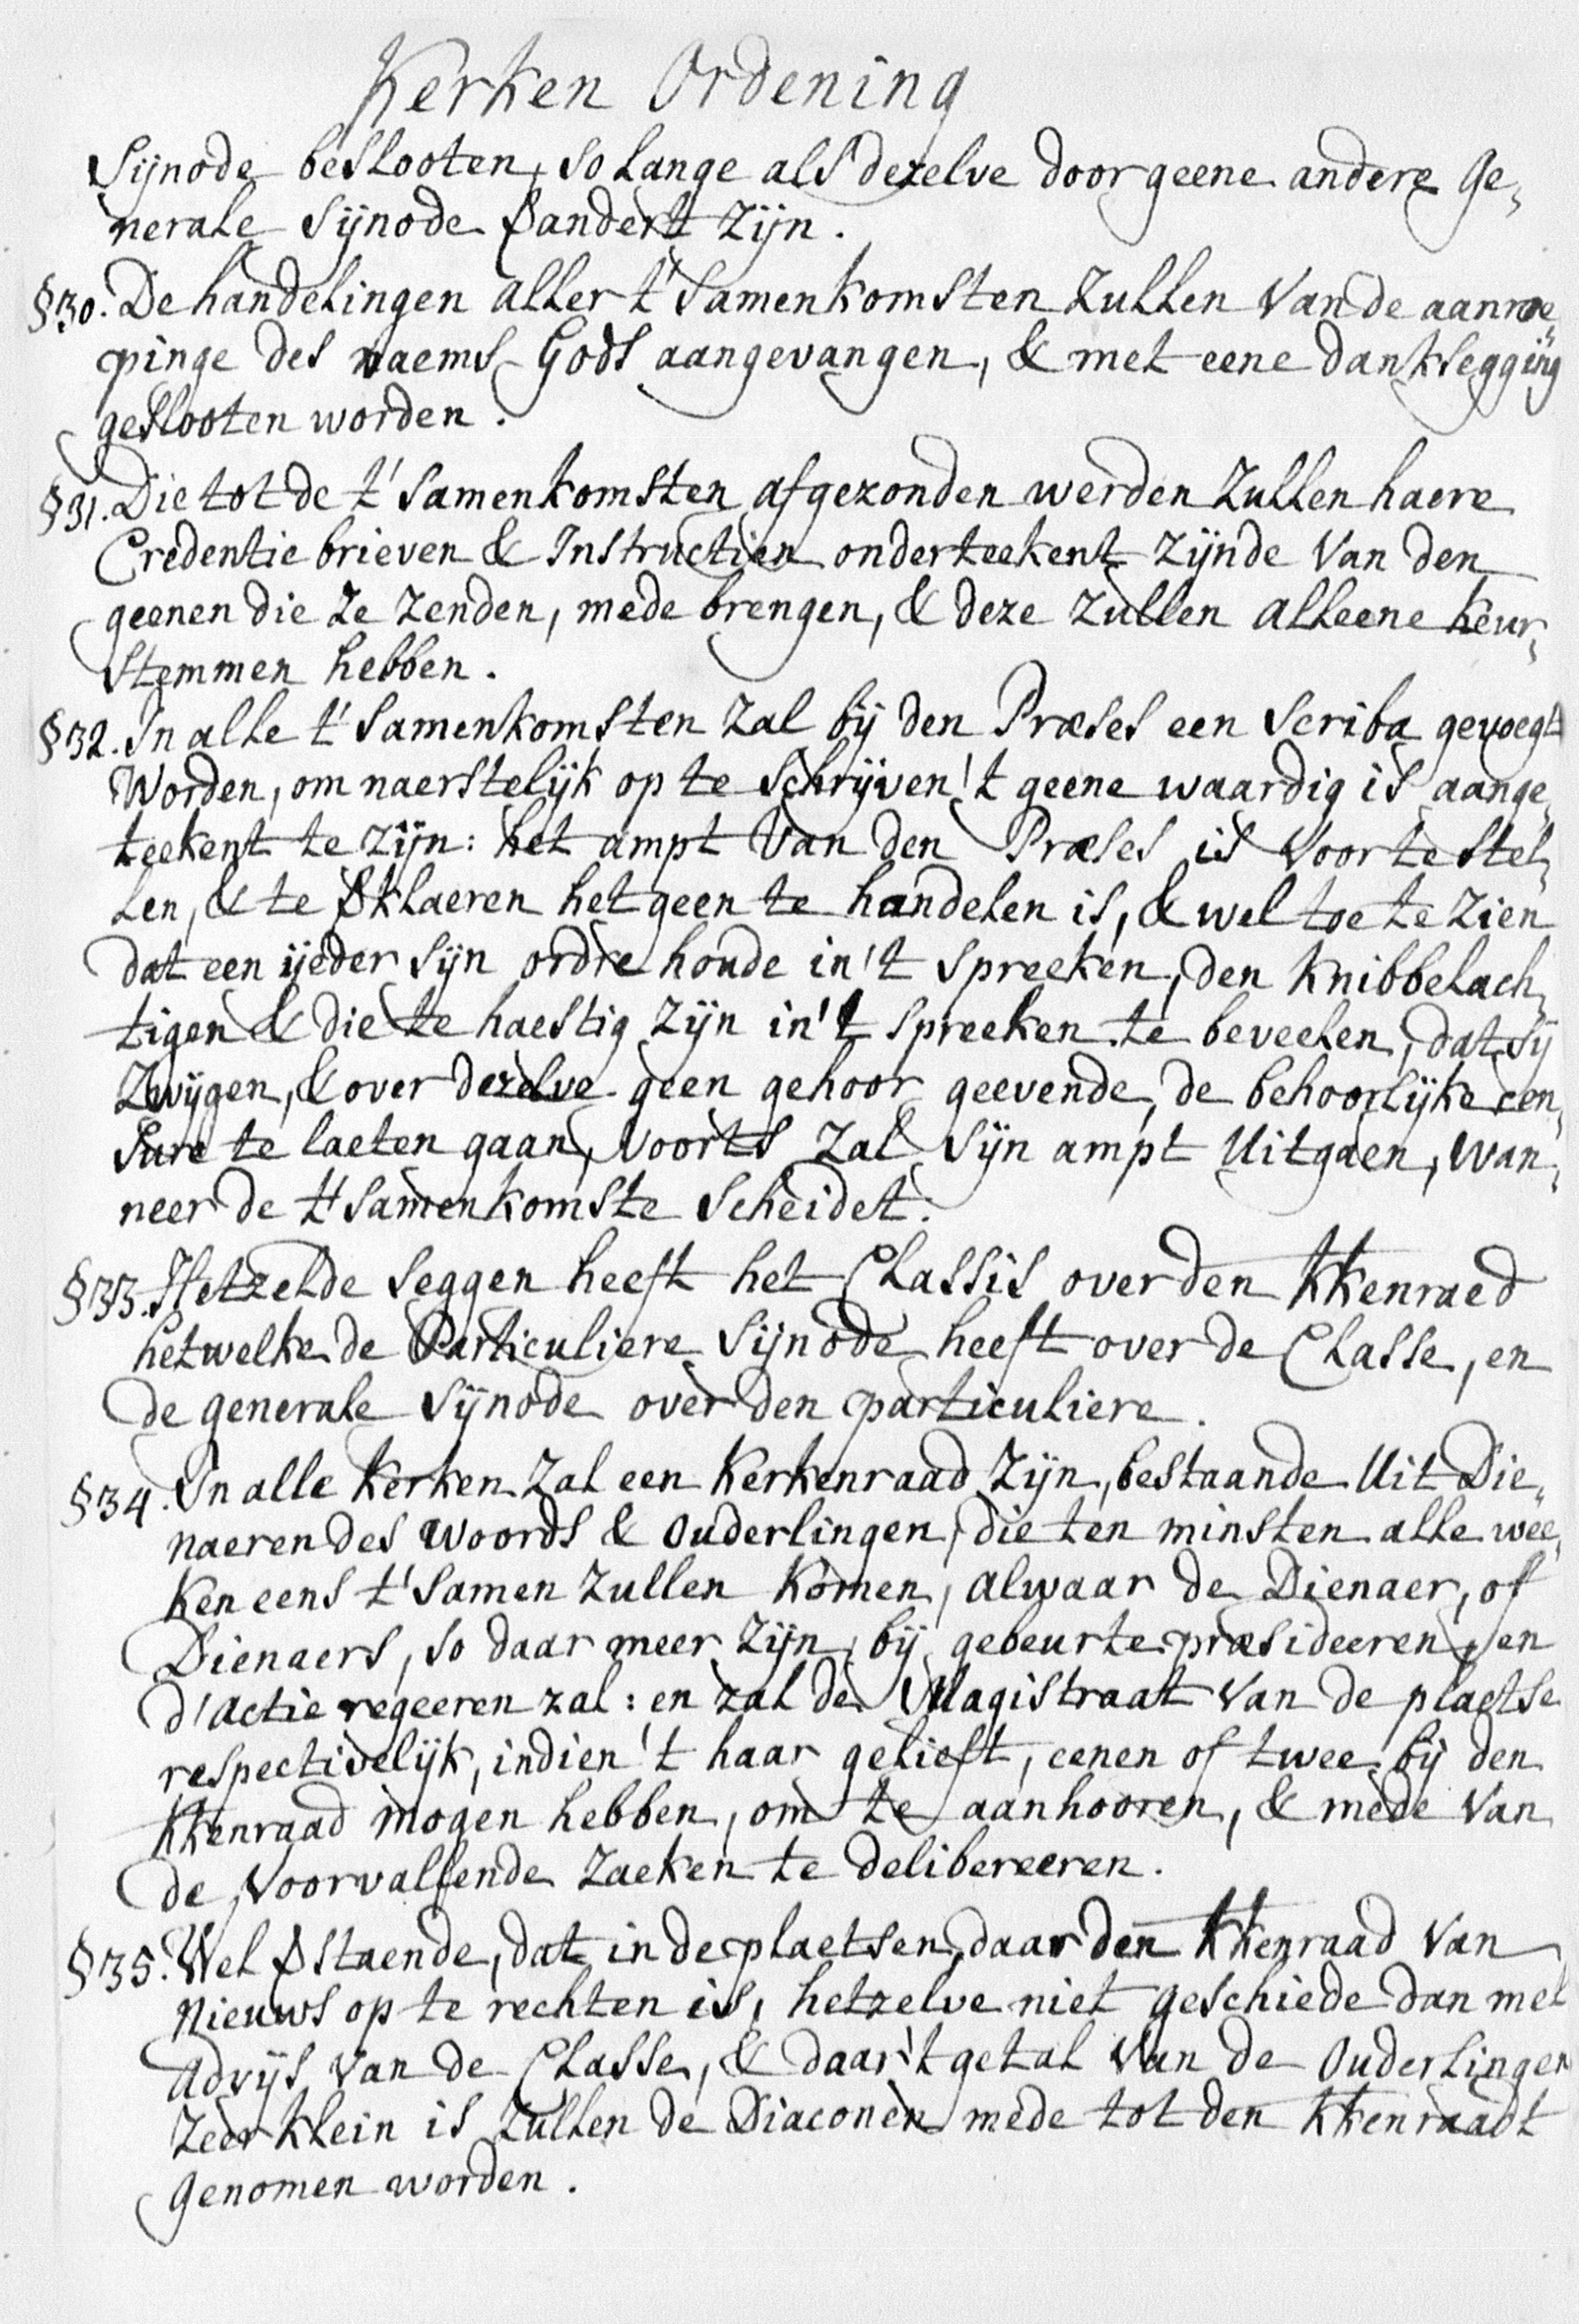 Kerken Ordening
Sijnode beslooten, so lange als dezelve door geene andere Ge„
nerale Sijnode ꝟandert zijn.
§30. De handelingen aller t'Samenkomsten zullen van de aanroe„
pinge des naems Gods aangevangen, & met eene dankseggijng
geslooten worden.
§31. Die tot de t'Samenkomsten afgezonden werden zullen haere
Credentie brieven & Instructien onderteekent zijnde van den
geenen die ze zenden, mede brengen, & deze zullen alleene keur„
stemmen hebben.
§32. In alle t'Samenkomsten zal bij den Præses een Scriba gevoegt
Worden, om naerstelijk op te schrijven 't geene waardig is aange„
teekent te zijn: het ampt van den Præses is voor te stel„
len, & te ꝟklaeren het geen te handelen is, & wel toe te zien
dat een ijeder sijn ordre houde in 't spreeken, den knibbelach„
tigen & die te haestig zijn in 't spreeken te beveelen, dat sij
zwijgen, & over dezelve geen gehoor geevende, de behoorlijke cen„
sure te laeten gaan, voorts zal sijn ampt uitgaen, wan„
neer de t'samenkomste scheidet.
§33. Hetzelde seggen heeft het Classis over den kkenraed
hetwelke de Particuliere Sijnode heeft over de Classe, en
de generale Sijnode over den particuliere.
§34. In alle kerken zal een Kerkenraad zijn, bestaande uit Die„
naeren des woords & ouderlingen, die ten minsten alle wee„
ken eens t'samen zullen komen, alwaar de Dienaer, of
Dienaers, so daar meer zijn, bij gebeurte præsideeren, en
d'actie regeeren zal: en zal de Magistraat van de plaetse
respectivelijk, indien 't haar gelieft, eenen of twee bij den
kkenraad mogen hebben, om te aanhooren, & mede van
de voorvallende zaeken te delibereeren.
§35. Wel ꝟstaende, dat in de plaetsen, daar den kkenraad van
nieuws op te rechten is, hetzelve niet geschiede dan met
advijs van de Classe, & daar 't getal van de ouderlingen
zeer klein is zullen de Diaconen mede tot den kkenraadt
genomen worden.